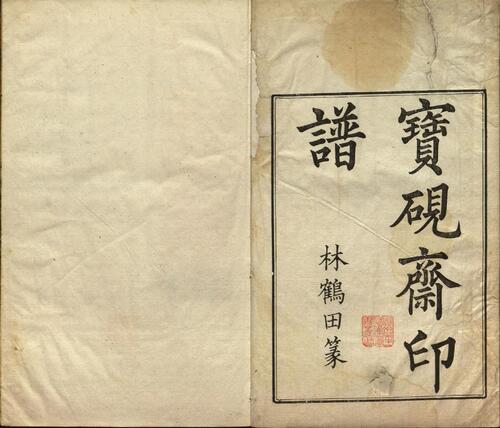 寶硯齋印
譜
林鶴田篆